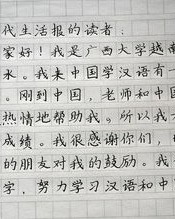 代生活报的读者：
家好！我是广西大学越南
水。我来中国学汉语有一
。刚到中国，老师和中国
热情地帮助我。所以我
成绩。我很感谢你们，
的朋友对我的鼓励。我
字，努力学习汉语和中